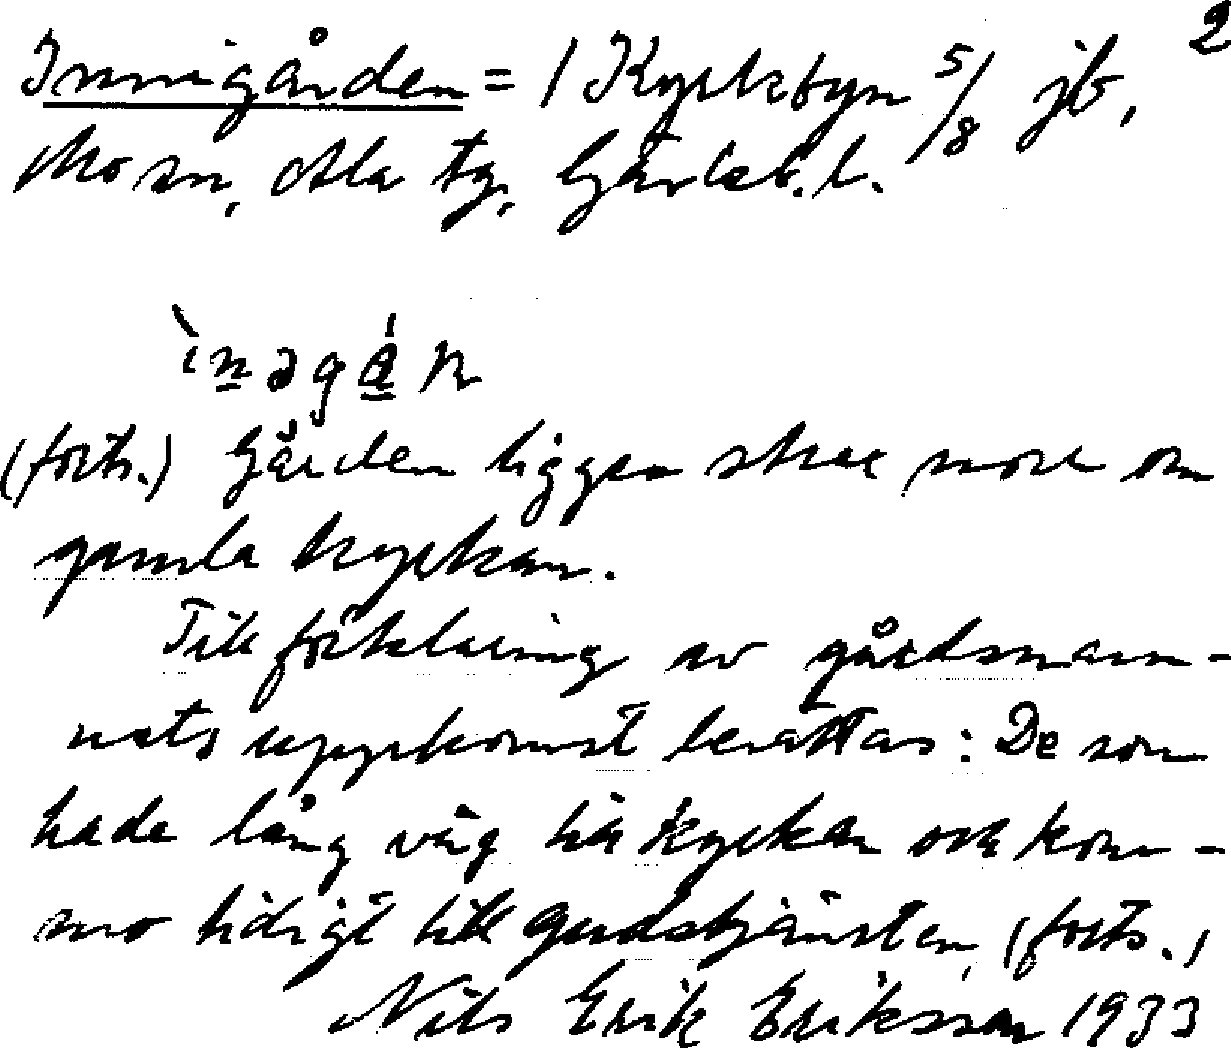 2
Innigården = 1 Kyrkbyn 5/8 jb,
Mo sn, Ala tg, Gävleb. l.
ìnəgá̱n
(forts.) Gården ligger strax norr om
gamla kyrkan.
Till förklaring av gårdsnam-
nets uppkomst berättas: De som
hade lång väg till kyrkan och kom-
mo tidigt till gudstjänsten, (forts.)
Nils Erik Eriksson 1933